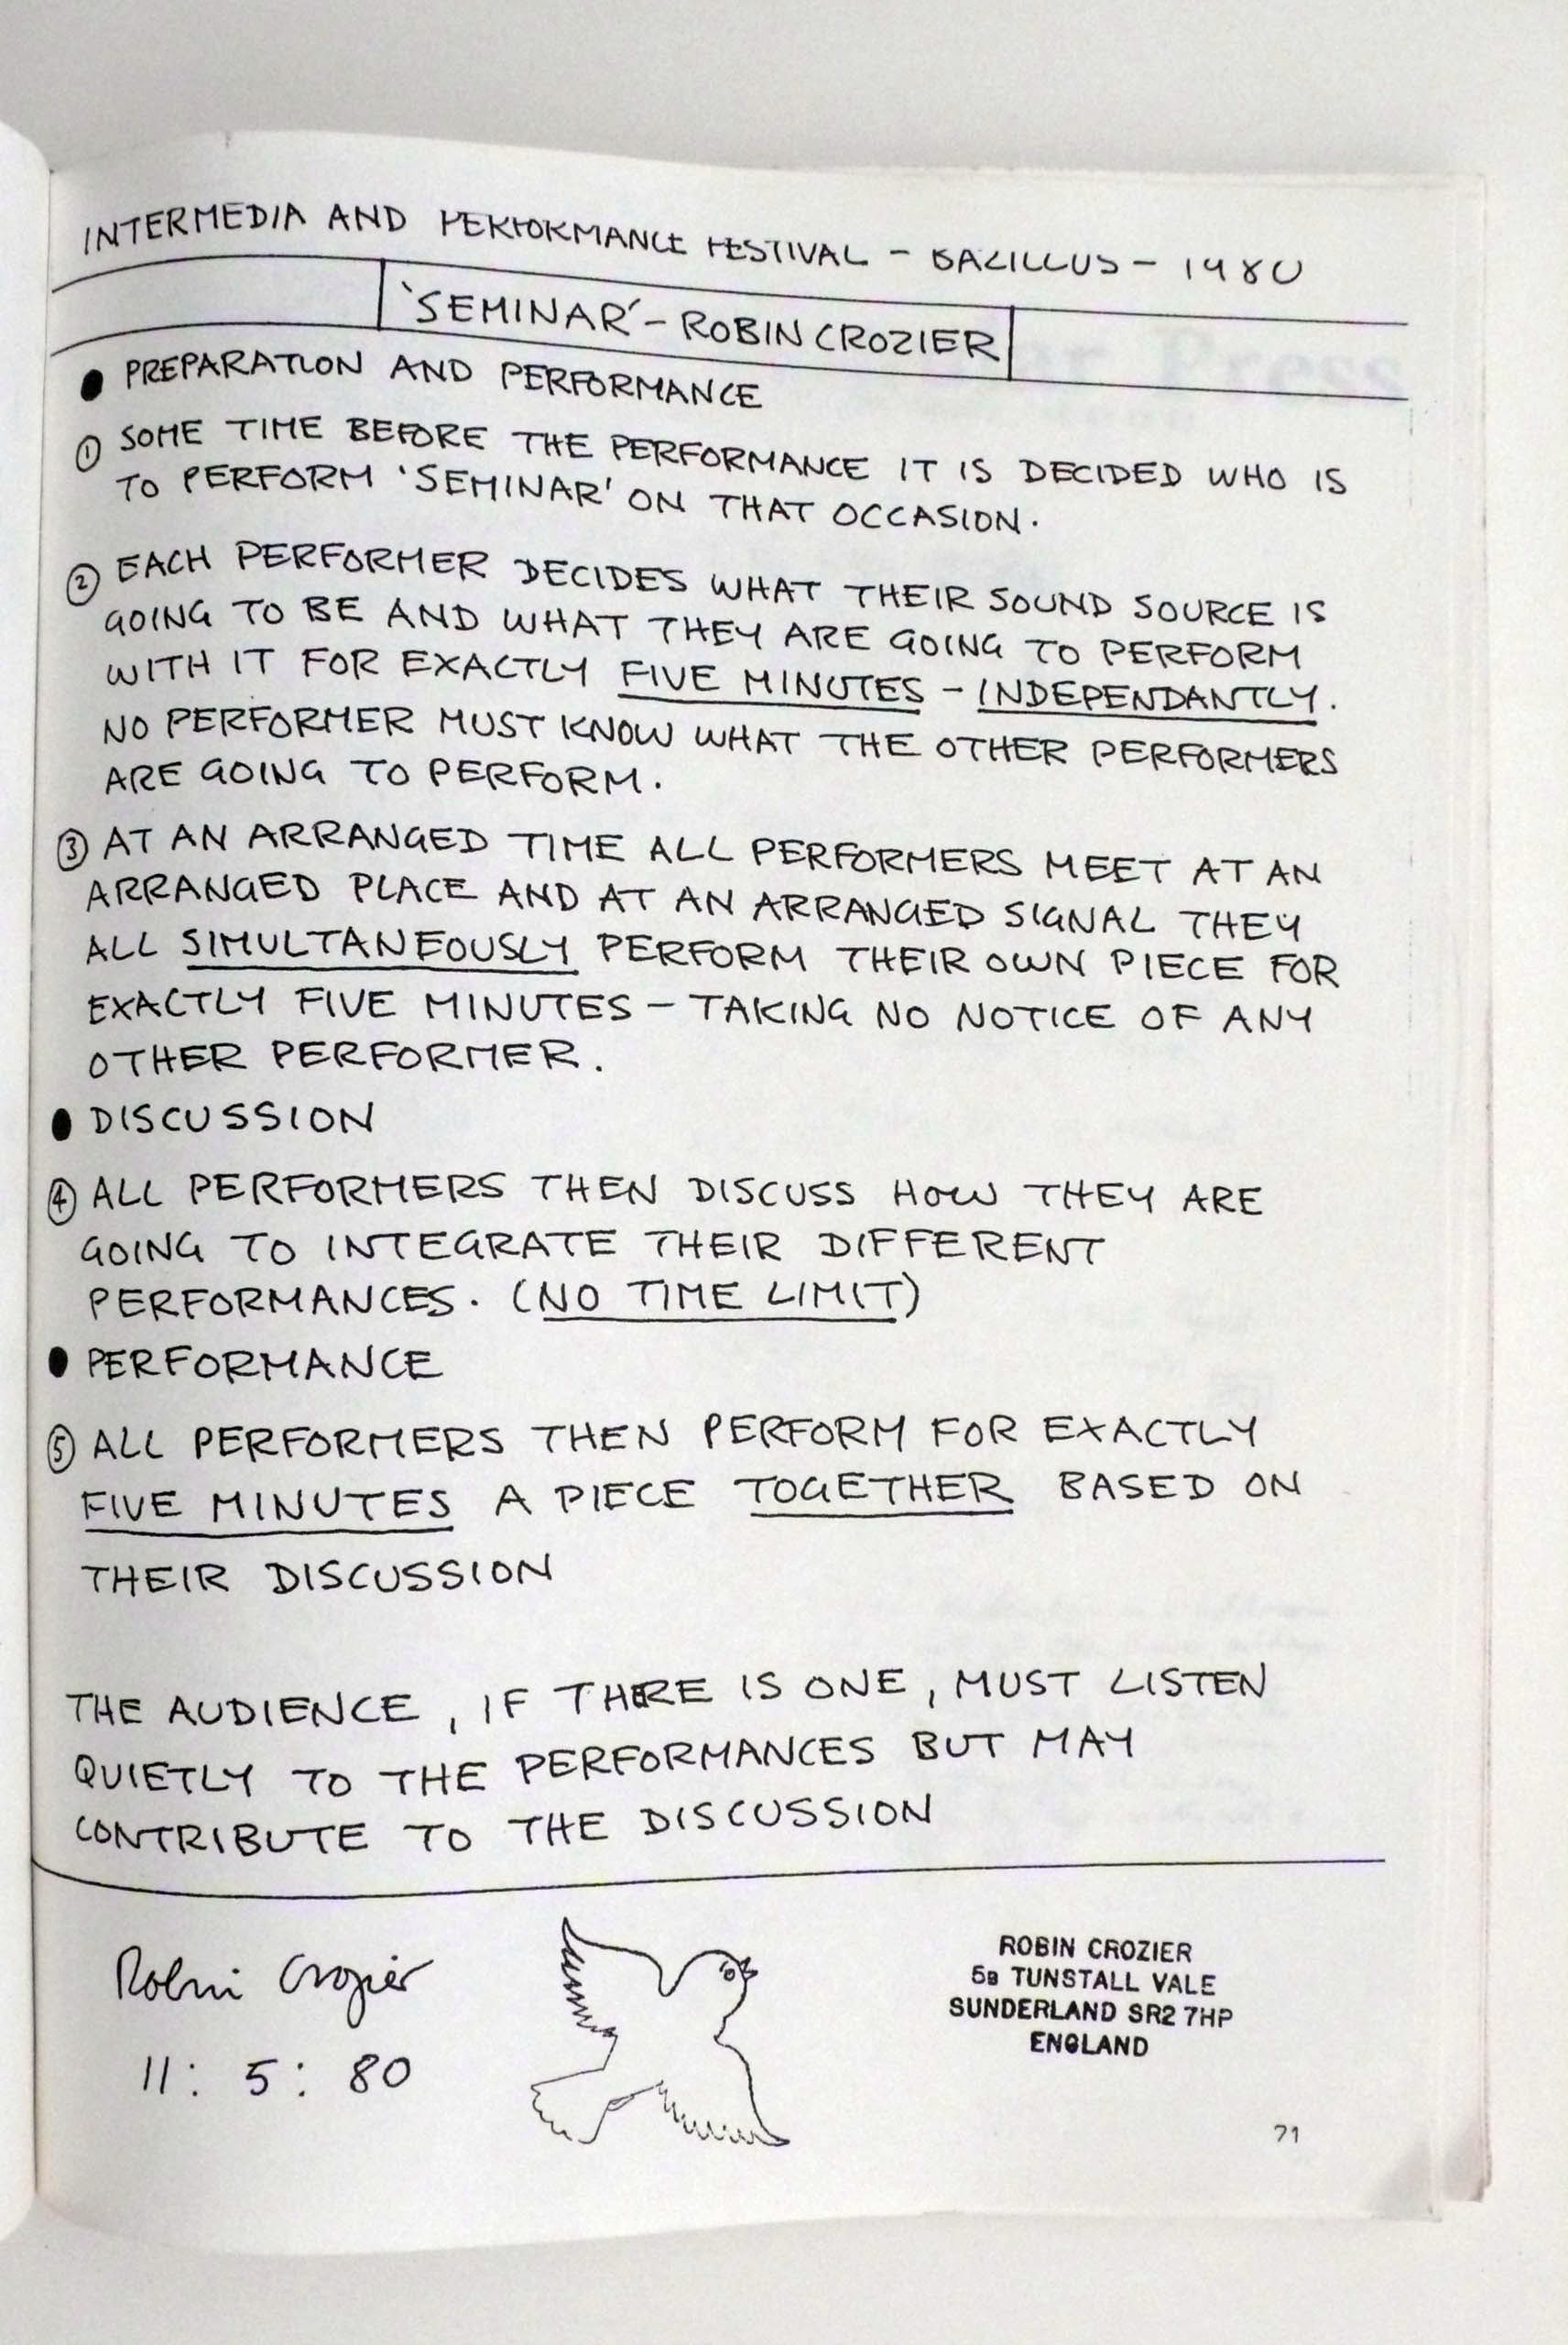 INTERMEDIA AND PERFORMANCE FESTIVAL – BACILLUS – 1980
'SEMINAR' – ROBIN CROZIER
● PREPARATION AND PERFORMANCE
① SOME TIME BEFORE THE PERFORMANCE IT IS DECIDED WHO IS
TO PERFORM 'SEMINAR' ON THAT OCCASION.
② EACH PERFORMER DECIDES WHAT THEIR SOUND SOURCE IS
GOING TO BE AND WHAT THEY ARE GOING TO PERFORM
WITH IT FOR EXACTLY FIVE MINUTES – INDEPENDANTLY.
NO PERFORMER MUST KNOW WHAT THE OTHER PERFORMERS
ARE GOING TO PERFORM.
③ AT AN ARRANGED TIME ALL PERFORMERS MEET AT AN
ARRANGED PLACE AND AT AN ARRANGED SIGNAL THEY
ALL SIMULTANEOUSLY PERFORM THEIR OWN PIECE FOR
EXACTLY FIVE MINUTES – TAKING NO NOTICE OF ANY
OTHER PERFORMER.
● DISCUSSION
④ ALL PERFORMERS THEN DISCUSS HOW THEY ARE
GOING TO INTEGRATE THEIR DIFFERENT
PERFORMANCES. (NO TIME LIMIT)
● PERFORMANCE
⑤ ALL PERFORMERS THEN PERFORM FOR EXACTLY
FIVE MINUTES A PIECE TOGETHER BASED ON
THEIR DISCUSSION
THE AUDIENCE, IF THERE IS ONE, MUST LISTEN
QUIETLY TO THE PERFORMANCES BUT MAY
CONTRIBUTE TO THE DISCUSSION
Robin Crozier
11: 5: 80
ROBIN CROZIER
TUNSTALL VALE
SUNDERLAND SR2 7HP
ENGLAND
71